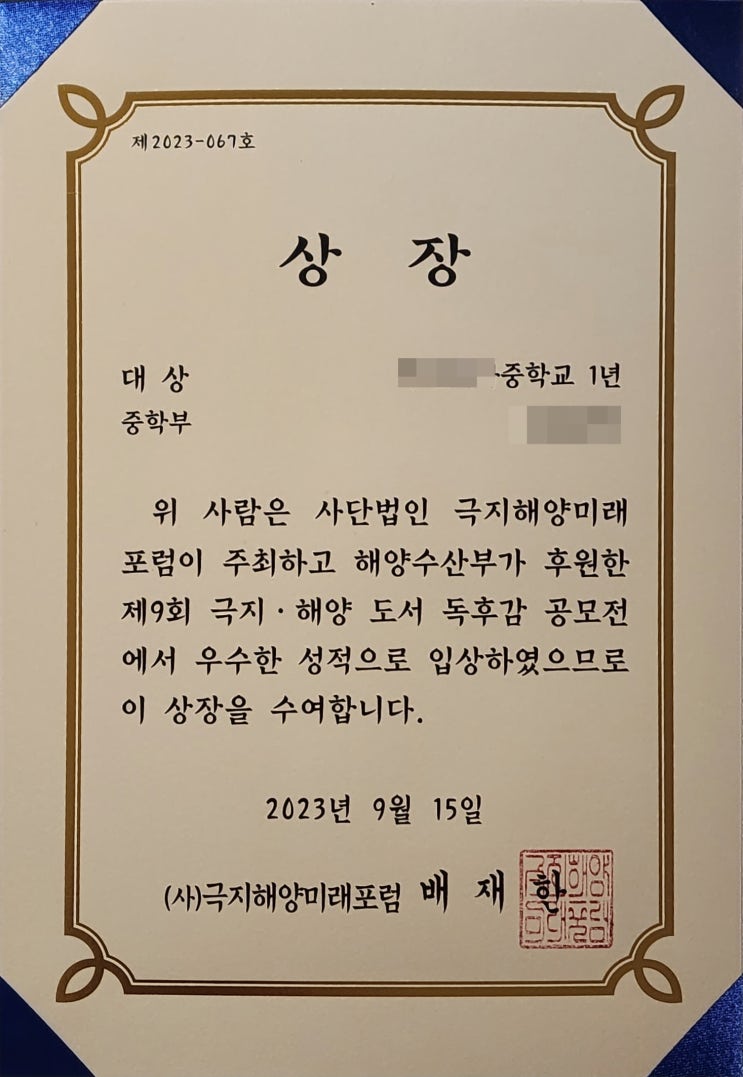 제2023-067호
상 장
대 상
중학교 1년
중학부
위 사람은 사단법인 극지해양미래
포럼이 주최하고 해양수산부가 후원한
제9회 극지·해양 도서 독후감 공모전
에서 우수한 성적으로 입상하였으므로
이 상장을 수여합니다.
2023년 9월 15일
(사)극지해양미래포럼 배 재 한